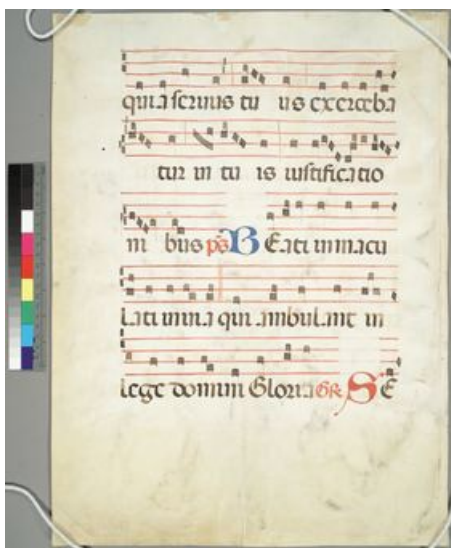 quia seruus tu us exerceba
tur in tu is iustificatio
ni bus ps BEati immacu
lati in uia qui ambulant in
lege domini Gloria Gr SE